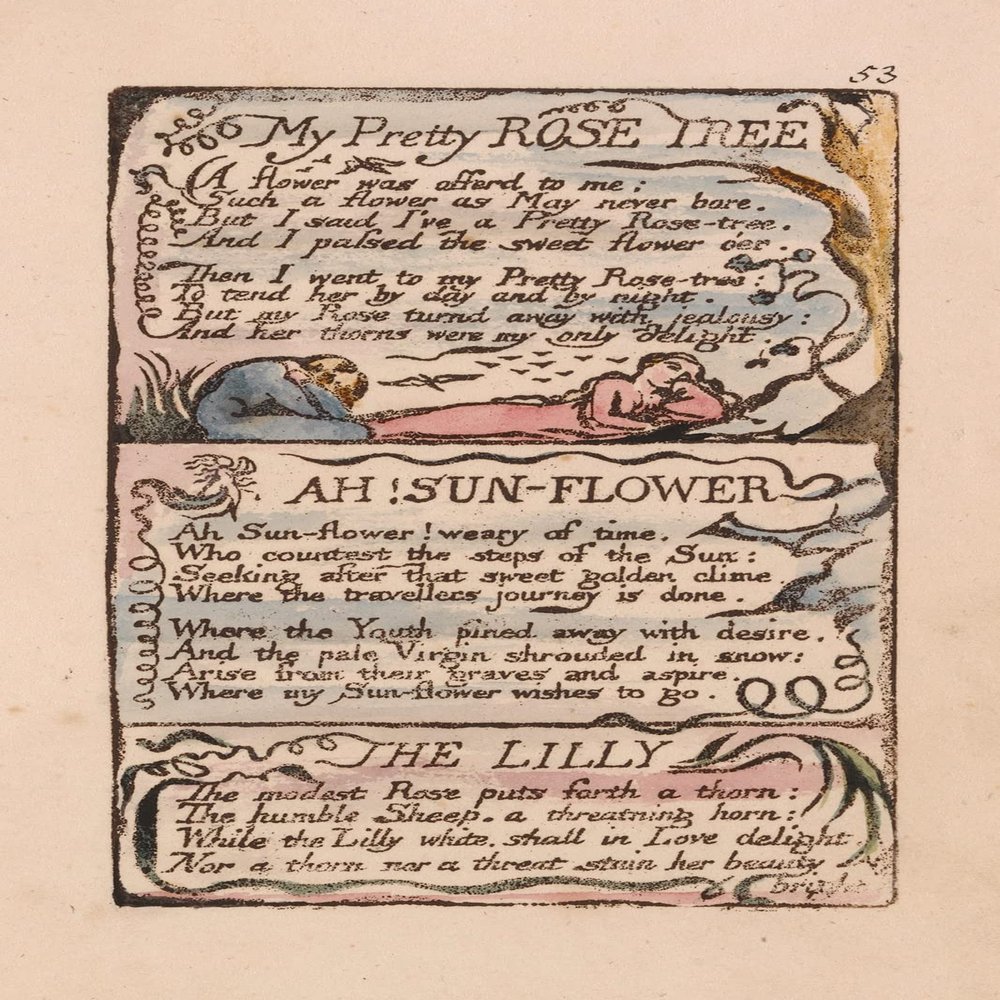 53
My Pretty ROSE TREE
A flower was offerd to me:
Such a flower as May never bore.
But I said I've a Pretty Rose-tree.
And I passed the sweet flower o'er.
Then I went to my Pretty Rose-tree:
To tend her by day and by night.
But my Rose turnd away with jealousy:
And her thorns were my only delight.
AH! SUN-FLOWER
Ah Sun-flower! weary of time.
Who countest the steps of the Sun:
Seeking after that sweet golden clime
Where the travellers journey is done.
Where the Youth pined away with desire.
And the pale Virgin shrouded in snow:
Arise from their graves and aspire.
Where my Sun-flower wishes to go.
THE LILLY
The modest Rose puts forth a thorn:
The humble Sheep. a threatning horn:
While the Lilly white. shall in Love delight
Nor a thorn nor a threat stain her beauty
bright